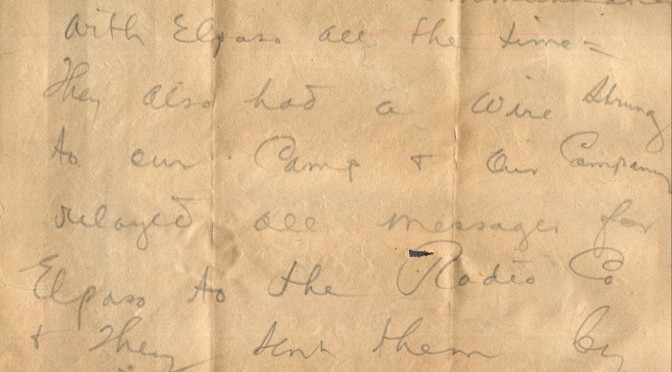 with Elpaso all the time =
They also had a wire strung
to our Camp & our Company
relayed all messages for
Elpaso to the Radio Co
& they sent them by